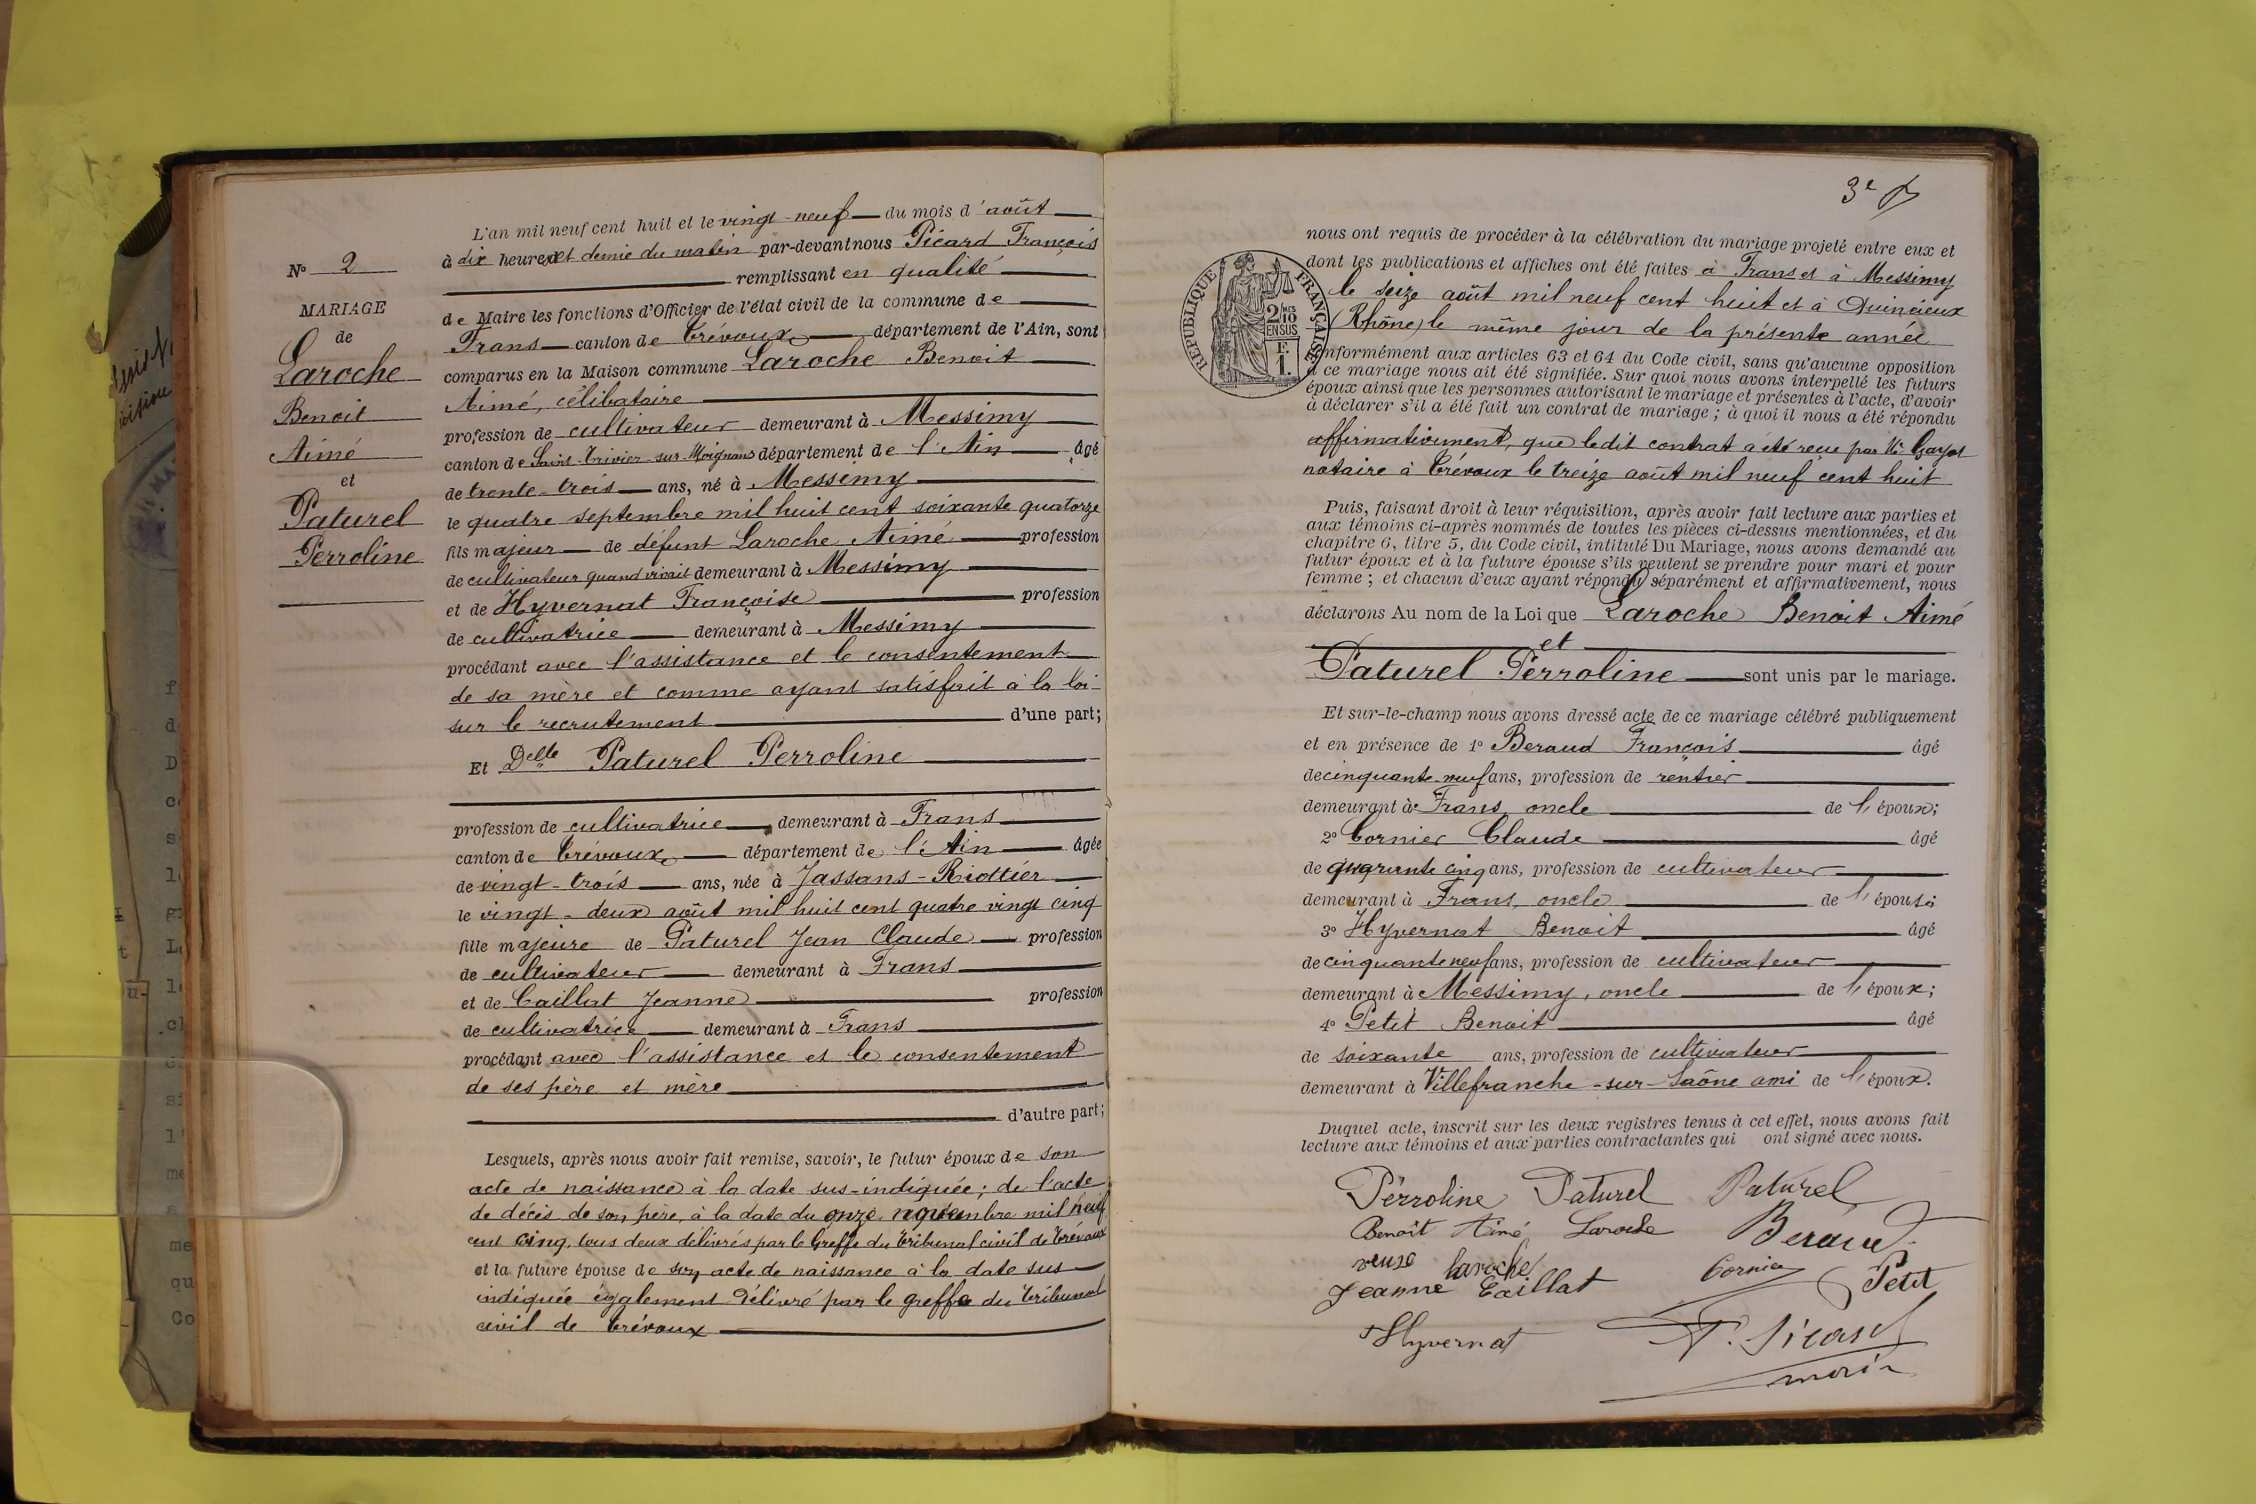 N° 2
MARIAGE
de
Laroche
Benoit
Aimé
et
Paturel
Perroline
L'an mil neuf cent huit et le vingt-neuf du mois d'août
à dix heures et demie du matin par-devant nous Picard François
remplissant en qualité
de Maire les fonctions d'Officier de l'état civil de la commune de
Frans canton de Trévoux département de l'Ain, sont
comparus en la Maison commune Laroche Benoit
Aimé, célibataire
profession de cultivateur demeurant à Messimy
canton de Saint-Trivier-sur-Moignans département de l'Ain âgé
de trente-trois ans, né à Messimy
le quatre septembre mil huit cent soixante quatorze
fils majeur de défunt Laroche Aimé profession
de cultivateur quand vivait demeurant à Messimy
et de Hyvernat Françoise profession
de cultivatrice demeurant à Messimy
procédant avec l'assistance et le consentement
de sa mère et comme ayant satisfait à la loi
sur le recrutement d'une part;
Et Delle Paturel Perroline
profession de cultivatrice demeurant à Frans
canton de Trévoux département de l'Ain âgée
de vingt-trois ans, née à Jassans-Riottier
le vingt-deux août mil huit cent quatre vingt cinq
fille majeure de Paturel Jean Claude profession
de cultivateur demeurant à Frans
et de Caillat Jeanne profession
de cultivatrice demeurant à Frans
procédant avec l'assistance et le consentement
de ses père et mère
d'autre part;
Lesquels, après nous avoir fait remise, savoir, le futur époux de son
acte de naissance à la date sus-indiquée; de l'acte
de décès de son père, à la date du onze novembre mil neuf
cent cinq, tous deux délivrés par le Greffe du Tribunal civil de Trévoux
et la future épouse de son acte de naissance à la date sus
indiquée également délivré par le greffe du Tribunal
civil de Trévoux
3e
RÉPUBLIQUE FRANÇAISE
2/10 EN SUS
F. 1.
nous ont requis de procéder à la célébration du mariage projeté entre eux et
dont les publications et affiches ont été faites à Frans et à Messimy
le seize août mil neuf cent huit et à Quincieux
(Rhône) le même jour de la présente année
conformément aux articles 63 et 64 du Code civil, sans qu'aucune opposition
à ce mariage nous ait été signifiée. Sur quoi nous avons interpellé les futurs
époux ainsi que les personnes autorisant le mariage et présentes à l'acte, d'avoir
à déclarer s'il a été fait un contrat de mariage; à quoi il nous a été répondu
affirmativement, que ledit contrat a été reçu par Me Gayot
notaire à Trévoux le treize août mil neuf cent huit
Puis, faisant droit à leur réquisition, après avoir fait lecture aux parties et
aux témoins ci-après nommés de toutes les pièces ci-dessus mentionnées, et du
chapitre 6, titre 5, du Code civil, intitulé Du Mariage, nous avons demandé au
futur époux et à la future épouse s'ils veulent se prendre pour mari et pour
femme; et chacun d'eux ayant répondu séparément et affirmativement, nous
déclarons Au nom de la Loi que Laroche Benoit Aimé
et
Paturel Perroline sont unis par le mariage.
Et sur-le-champ nous avons dressé acte de ce mariage célébré publiquement
et en présence de 1° Beraud François âgé
de cinquante-neuf ans, profession de rentier
demeurant à Frans, oncle de l'époux;
2° Cornier Claude âgé
de quarante cinq ans, profession de cultivateur
demeurant à Frans, oncle de l'épouse;
3° Hyvernat Benoit âgé
de cinquante neuf ans, profession de cultivateur
demeurant à Messimy, oncle de l'époux;
4° Petit Benoit âgé
de soixante ans, profession de cultivateur
demeurant à Villefranche-sur-Saône ami de l'époux.
Duquel acte, inscrit sur les deux registres tenus à cet effet, nous avons fait
lecture aux témoins et aux parties contractantes qui ont signé avec nous.
Pérroline Paturel Paturel
Benoît Aimé Laroche Beraud
veuve Laroche Cornier Petit
Jeanne Caillat
Hyvernat F. Picard